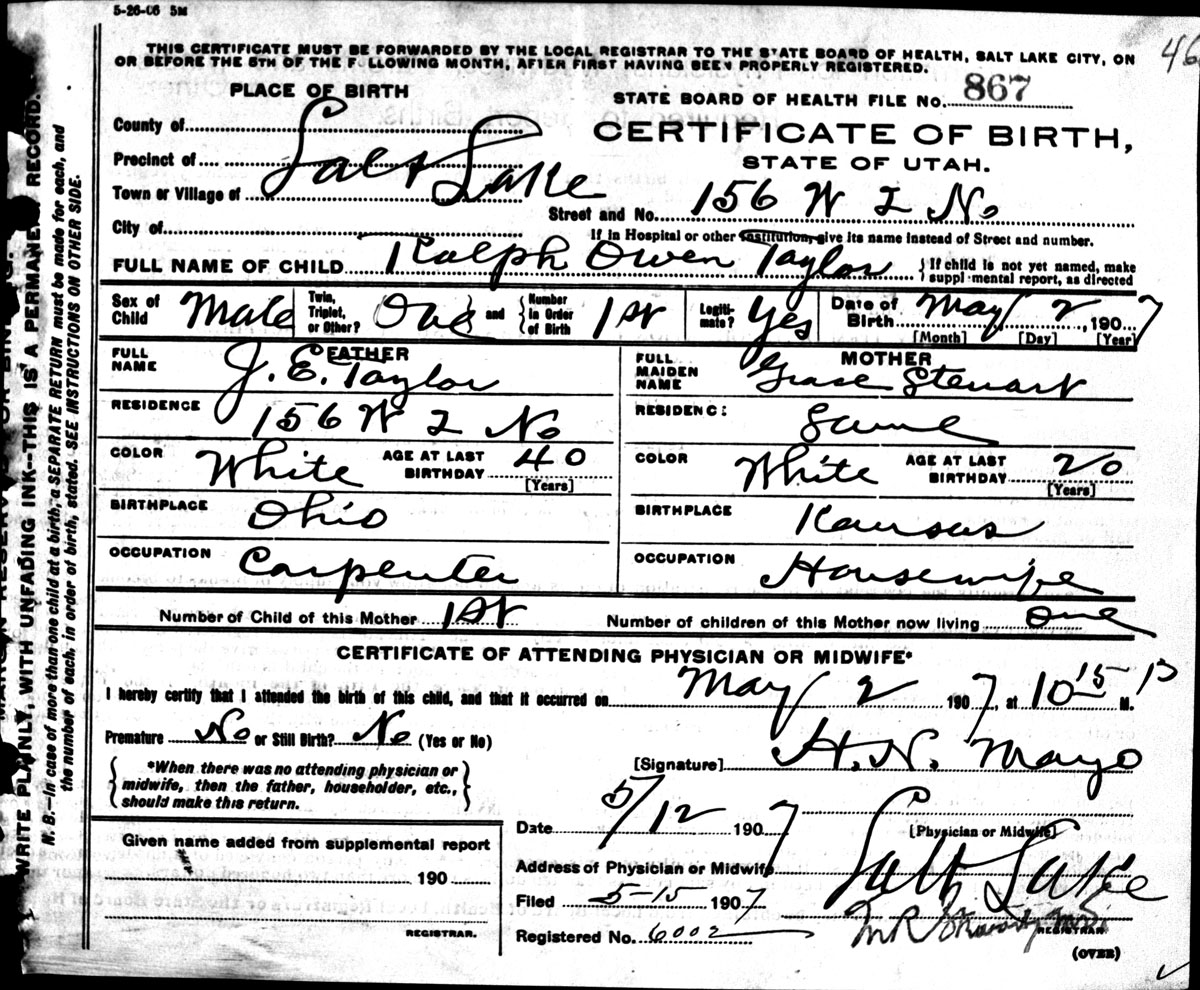 5-26-06 5M
46
THIS CERTIFICATE MUST BE FORWARDED BY THE LOCAL REGISTRAR TO THE STATE BOARD OF HEALTH, SALT LAKE CITY, ON
OR BEFORE THE 5TH OF THE F LLOWING MONTH, AFTER FIRST HAVING BEEN PROPERLY REGISTERED.
PLACE OF BIRTH
STATE BOARD OF HEALTH FILE NO. 867
County of
CERTIFICATE OF BIRTH,
Precinct of Salt Lake
STATE OF UTAH.
Town or Village of
Street and No. 156 W 2 No
City of
If in Hospital or other Institution, give its name instead of Street and number.
FULL NAME OF CHILD Ralph Owen Taylor { If child is not yet named, make
suppl mental report, as directed
Sex of Child Male Twin, Triplet, or Other? One and { Number in Order of Birth 1st Legiti-mate? Yes Date of Birth May 2, 1907
[Month] [Day] [Year]
FATHER
FULL NAME J. E. Taylor
RESIDENCE 156 W 2 No
COLOR White AGE AT LAST BIRTHDAY 40
[Years]
BIRTHPLACE Ohio
OCCUPATION Carpenter
MOTHER
FULL MAIDEN NAME Grace Stewart
RESIDENC: Same
COLOR White AGE AT LAST BIRTHDAY 20
[Years]
BIRTHPLACE Kansas
OCCUPATION Housewife
Number of Child of this Mother 1st Number of children of this Mother now living One
CERTIFICATE OF ATTENDING PHYSICIAN OR MIDWIFE*
I hereby certify that I attended the birth of this child, and that it occurred on May 2 1907, at 10 15 P M.
Premature No or Still Birth? No (Yes or No)
{ *When there was no attending physician or
midwife, then the father, householder, etc.,
should make this return. }
[Signature] H. N. Mayo
Date 5/12 1907
[Physician or Midwife]
Given name added from supplemental report
190
REGISTRAR.
Address of Physician or Midwife Salt Lake
Filed 5-15 1907
Registered No. 6002
REGISTRAR
(OVER)
WRITE PLAINLY, WITH UNFADING INK--THIS IS A PERMANENT RECORD.
N. B.--In case of more than one child at a birth, a SEPARATE RETURN must be made for each, and
the number of each, in order of birth, stated. SEE INSTRUCTIONS ON OTHER SIDE.